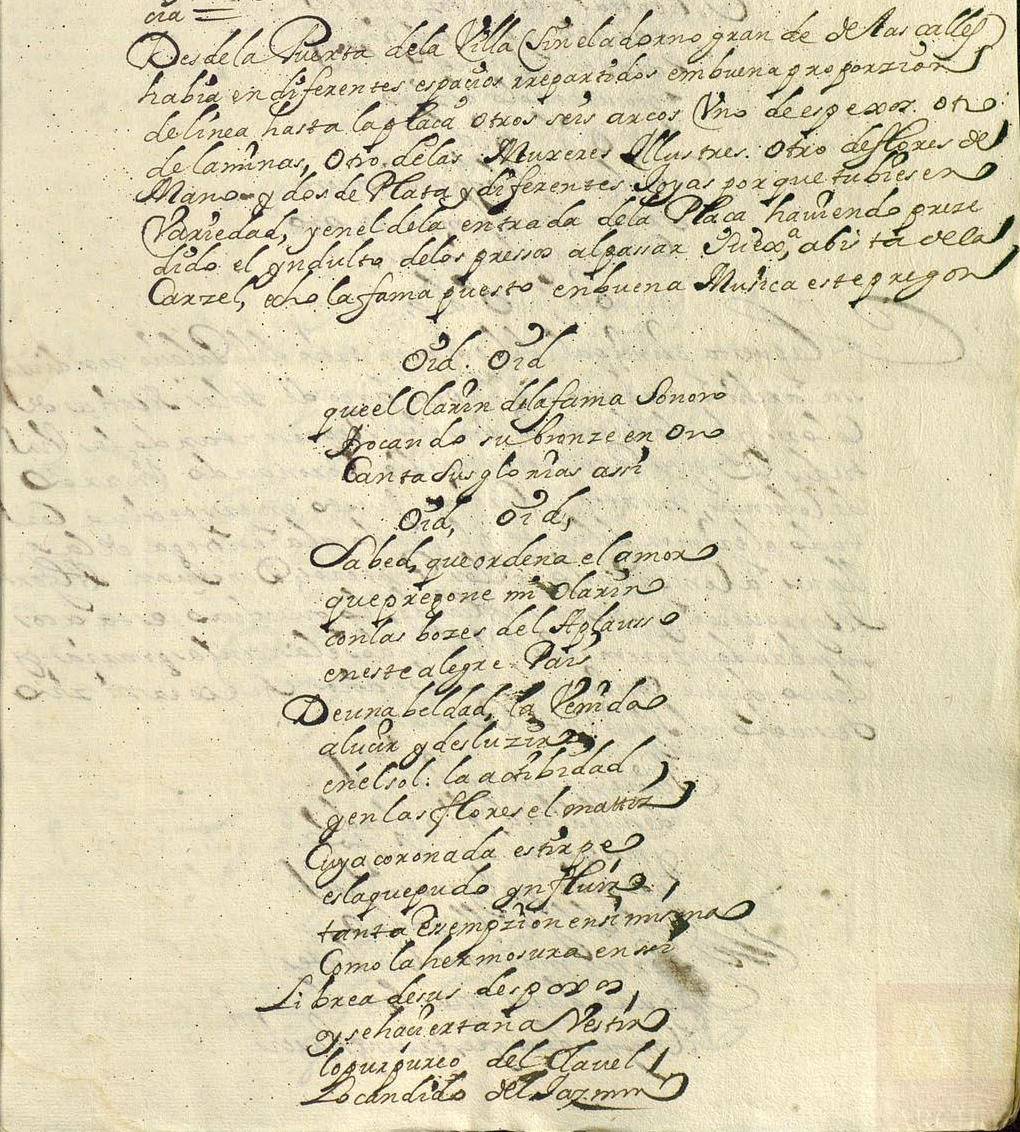 cia =
Desde la Puerta de la Villa (sin el adorno gran de de las calles)
habia en diferentes espacios rrepartidos em buena proporzion
de linea hasta la plaça otros seis arcos Uno de espexos. otro
de laminas, Otro de las Mugeres Illustres. Otro de flores de
Mano y dos de Plata y diferentes Joyas porque tubiesen
Variedad, y en el de la entrada de la Plaça haviendo prece
dido el yndulto de los pressos al passar Su exª a bista de la
Carzel, echo la fama puesto en buena Musica este pregon
Oid. Oid
que el Clarin de la fama Sonoro
trocando su bronze en Oro
Canta Sus glorias assi
Oid, Oid,
Sabed, que ordena el amor
que pregone mi Clarin
con las bozes del Aplauso
en este alegre Pais
De una beldad, la Venida
a lucir y desluzir
en el sol: la actibidad
y en las flores el mattiz
Cuya coronada estirpe
es la que pudo ynfluir,
tanta Exempzion en si misma
Como la hermosura en si
Librea de sus despoxos,
y se hacertaran a Vestir
lo purpureo del Clavel
Lo candido del Jazmin